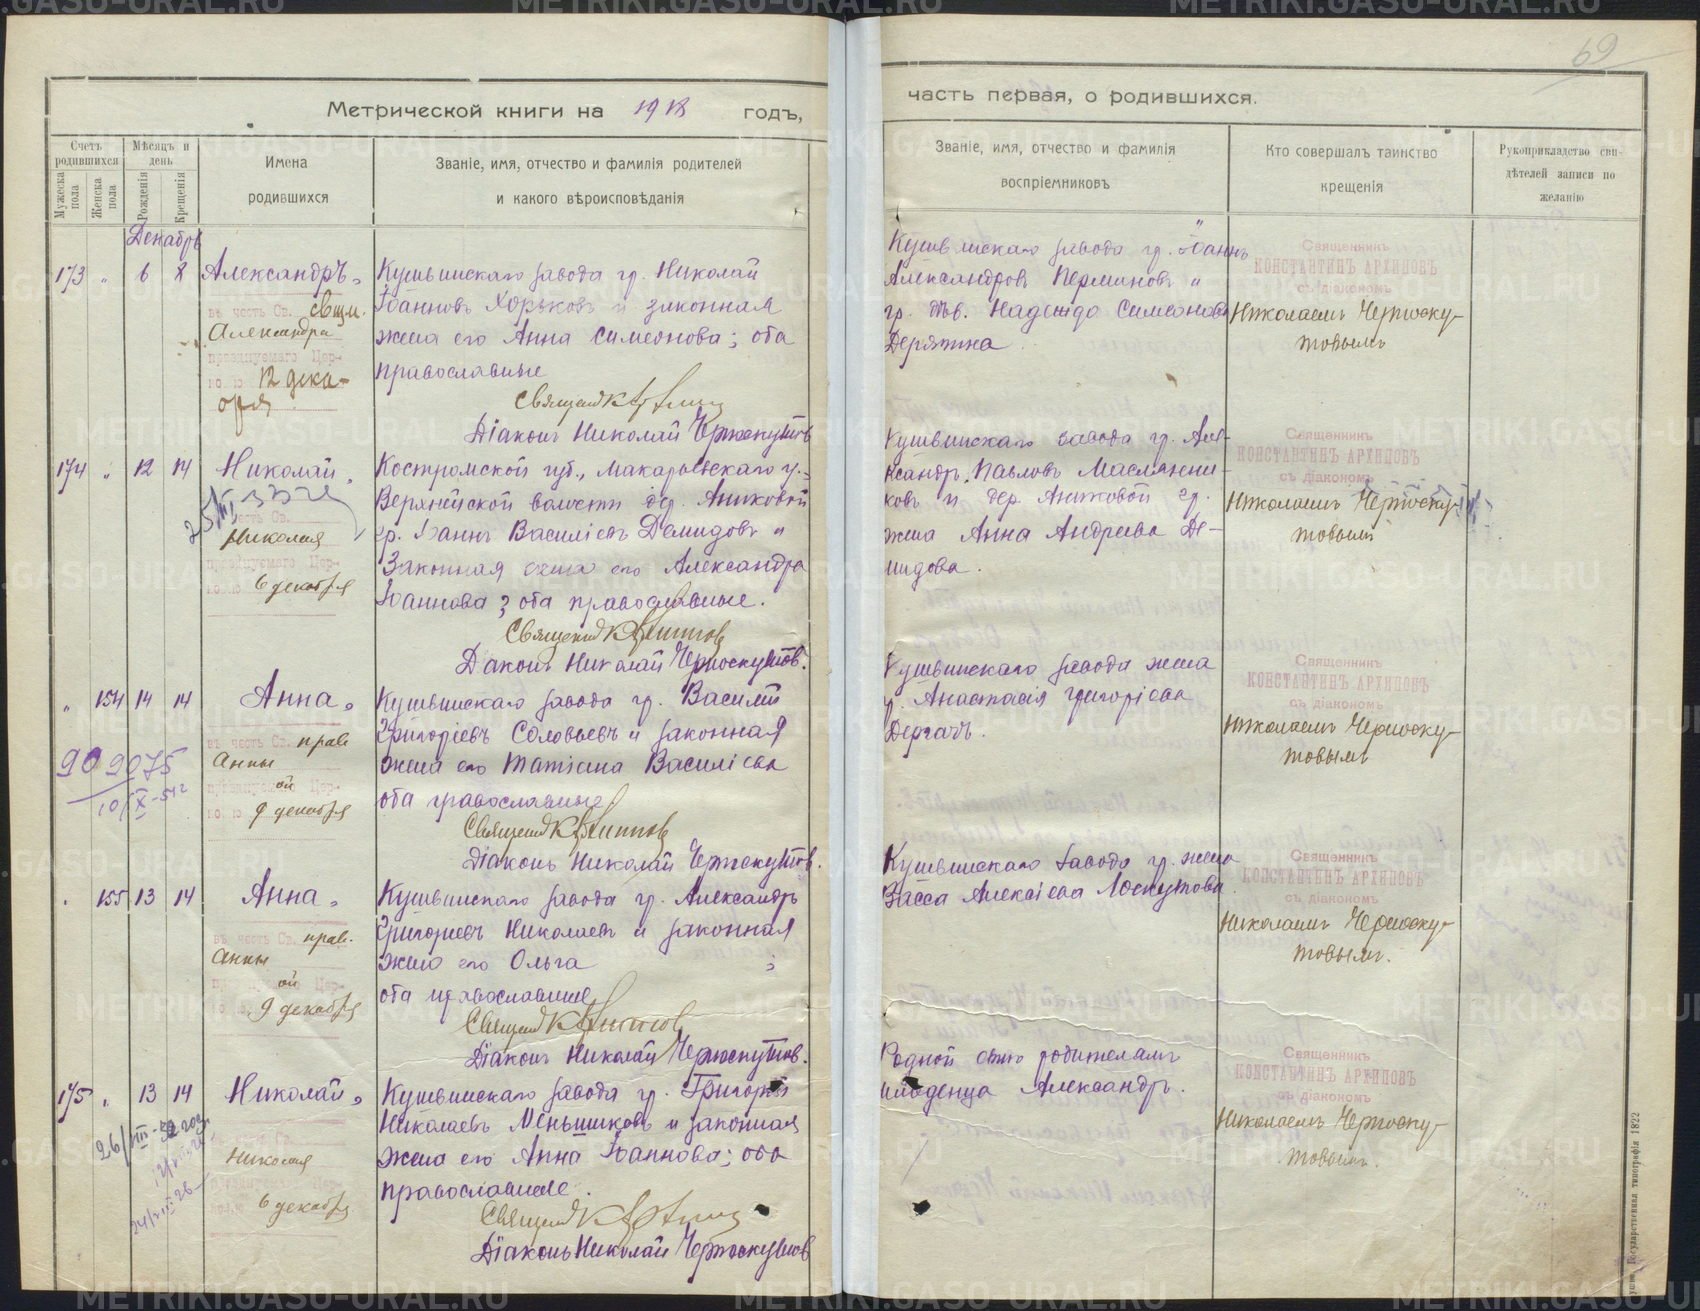 69
Метрической книги на 1918 годъ,
часть первая, о родившихся.
Счетъ родившихся
Мужеска пола
Женска пола
Мѣсяцъ и день
Рожденія
Крещенія
Имена
родившихся
Званіе, имя, отчество и фамилія родителей
и какого вѣроисповѣданія
Званіе, имя, отчество и фамилія
воспріемниковъ
Кто совершалъ таинство
крещенія
Рукоприкладство сви-
дѣтелей записи по
желанію
Декабрь
173 " 6 8
Александръ
въ честь Св. свщм.
Александра
празднуемаго Цер-
ко..ю 12 дека-
бря
Кушвинскаго завода гр. Николай
Іоанновъ Хорьковъ и законная
жена его Анна Симеонова; оба
православные
Священ К Архипов
Діаконъ Николай Черноскутовъ
Кушвинскаго завода гр. Іоаннъ
Александровъ Перминовъ и
гр. дѣв. Надежда Симеонова
Дерягина
Священникъ
КОНСТАНТИНЪ АРХИПОВЪ
съ діакономъ
Николаемъ Черноску-
товымъ
174 " 12 14
Николай
въ честь Св.
Николая
празднуемаго Цер-
ко..ю 6 декабря
Костромской губ., Макарьевскаго у.
волости дер. Аниковой
гр. Іоаннъ Василіевъ Демидовъ и
законная жена его Александра
Іоаннова; оба православные.
Священник К Архипов
Діаконъ Николай Черноскутовъ.
Кушвинскаго завода гр. Але-
ксандръ Павловъ Маслянни-
ковъ и дер. Аниковой гр.
жена Анна Андреева Де-
мидова.
Священникъ
КОНСТАНТИНЪ АРХИПОВЪ
съ діакономъ
Николаемъ Черноску-
товымъ
" 154 14 14
Анна
въ честь Св. прав.
Анны
празднуемой Цер-
ко..ю 9 декабря
909075
10/X-51г
Кушвинскаго завода гр. Василій
Григоріевъ Соловьевъ и законная
жена его Татіана Василіева
оба православные
Священ К Архипов
Діаконъ Николай Черноскутовъ.
Кушвинскаго завода жена
гр. Анастасія Григоріева
Дергачъ.
Священникъ
КОНСТАНТИНЪ АРХИПОВЪ
съ діакономъ
Николаемъ Черноску-
товымъ
" 155 13 14
Анна
въ честь Св. прав.
Анны
празднуемой Цер-
ко..ю 9 декабря
Кушвинскаго завода гр. Александръ
Григориевъ Николаевъ и законная
жена его Ольга ;
оба православные
Священ К Архипов
Діаконъ Николай Черноскутовъ.
Кушвинскаго завода гр. жена
Васса Алексіева Лоскутова.
Священникъ
КОНСТАНТИНЪ АРХИПОВЪ
съ діакономъ
Николаемъ Черноску-
товымъ.
175 " 13 14
Николай
въ честь Св.
Николая
празднуемаго Цер-
ко..ю 6 декабря
Кушвинскаго завода гр. Григорій
Николаевъ Меньшиковъ и законная
жена его Анна Іоаннова; оба
православные.
Священ К Архипов
Діаконъ Николай Черноскутовъ
Родной сынъ родителямъ
младенца Александръ.
Священникъ
КОНСТАНТИНЪ АРХИПОВЪ
съ діакономъ
Николаемъ Черноску-
товымъ.
Государственная типографія 1822
METRIKI.GASO-URAL.RU